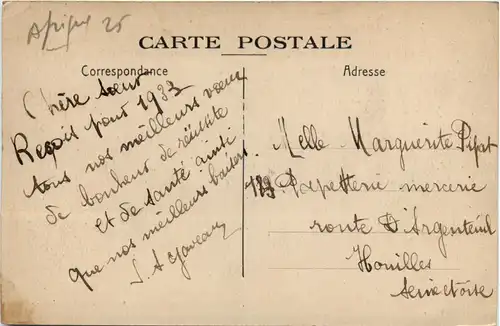 Afrique 25
CARTE POSTALE
Correspondance
Adresse
Chère sœur
Reçois pour 1933
tous nos meilleurs vœux
de bonheur de réussite
et de santé ainsi
que nos meilleurs baisers
Melle Marguerite Pipat
Papetterie mercerie
route D'Argenteuil
Houilles
Seine et oise